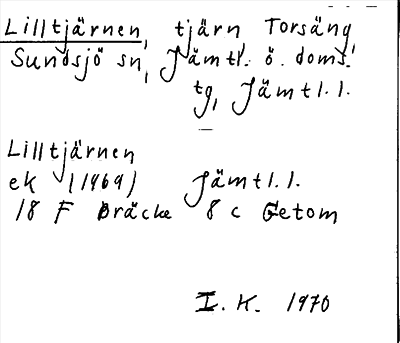 Lilltjärnen, tjärn, Torsäng,
Sundsjö sn, Jämtl. ö. doms.
tg, Jämtl.l.
Lilltjärnen
ek (1969) Jämtl.l.
18 F Bräcke 8 c Getom
I.K. 1970